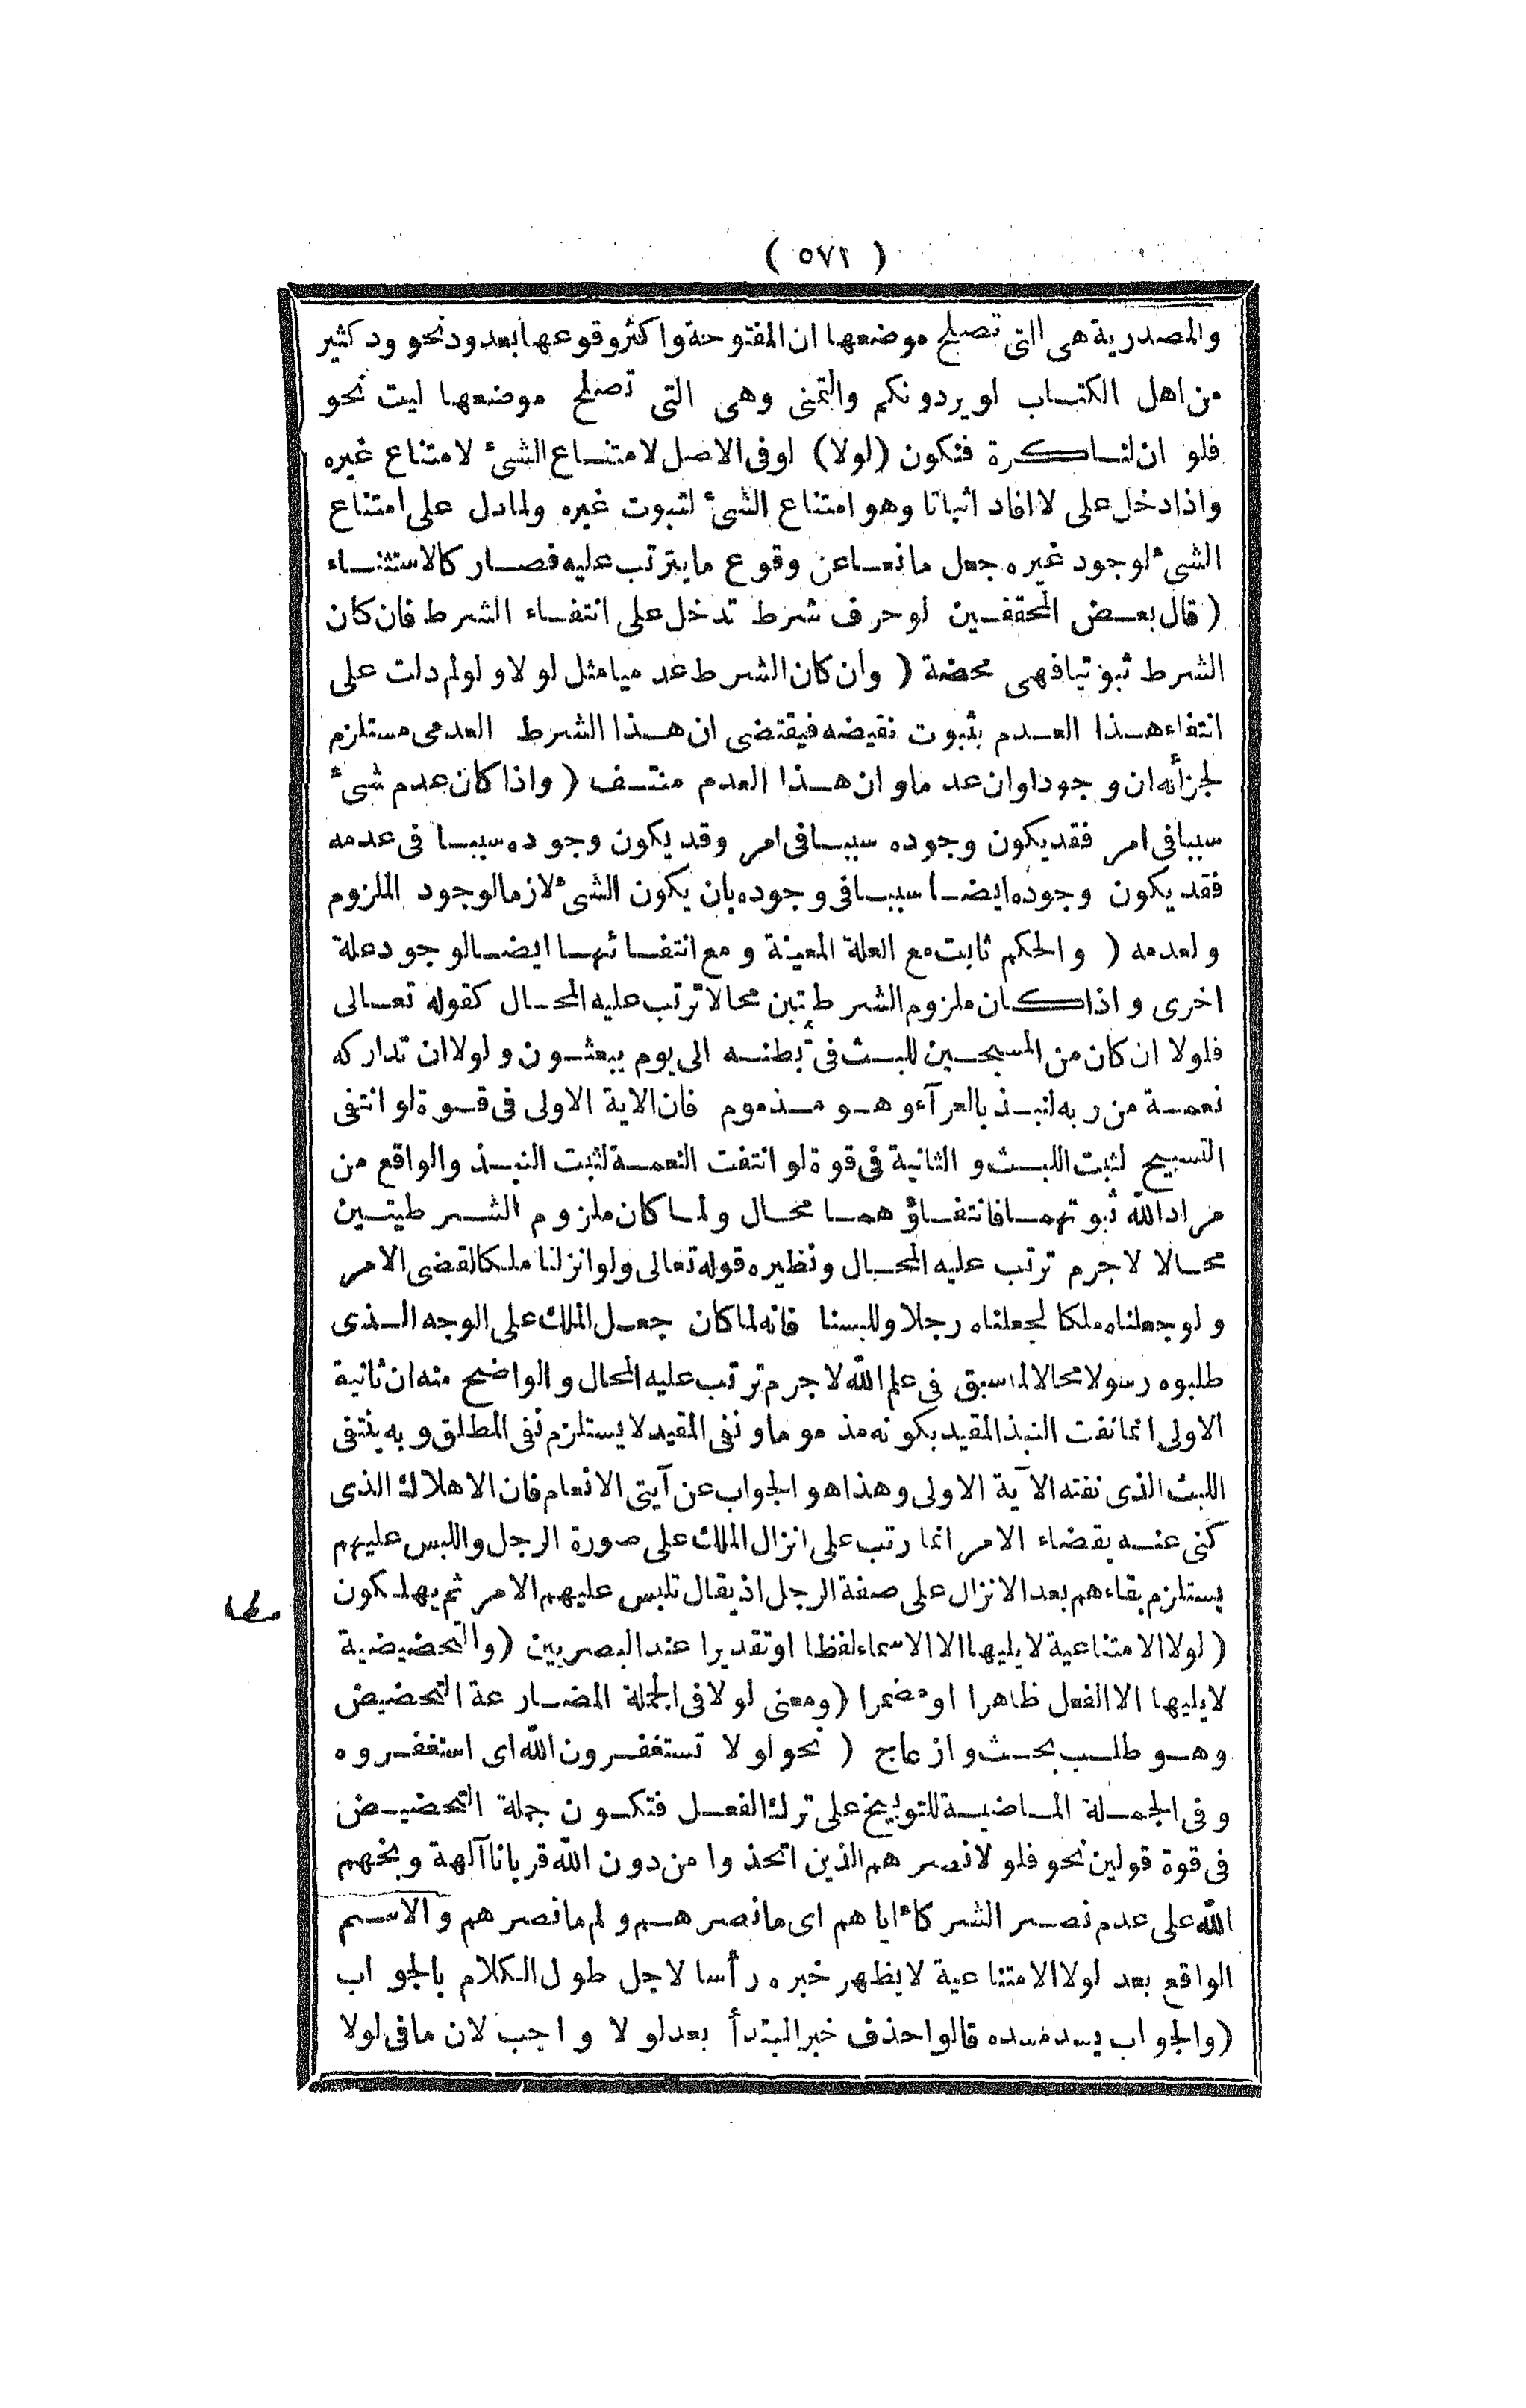 ( ٥٧٢ )
والمصدرية هى التى تصلح موضعها ان المفتوحة واكثر وقوعها بعد ود نحو ود كثير
من اهل الكتاب لو يردونكم والتمنى وهى التى تصلح موضعها ليت نحو
فلو ان لنا كرة فنكون (لولا) لو فى الاصل لامتناع الشئ لامتناع غيره
واذا دخل على لا افاد اثباتا وهو امتناع الشئ لثبوت غيره ولما دل على امتناع
الشئ لوجود غيره جعل مانعا عن وقوع ما يترتب عليه فصار كالاستثناء
( قال بعض المحققين لو حرف شرط تدخل على انتفاء الشرط فان كان
الشرط ثبوتيا فهى محضة ( وان كان الشرط عدميا مثل لولا ولو لم دلت على
انتفاء هذا العدم بثبوت نقيضه فيقتضى ان هذا الشرط العدمى مستلزم
لجزائه ان وجودا وان عدما وان هذا العدم منتف ( واذا كان عدم شئ
سببا فى امر فقد يكون وجوده سببا فى امر وقد يكون وجوده سببا فى عدمه
فقد يكون وجوده ايضا سببا فى وجوده بان يكون الشئ لازما لوجود الملزوم
ولعدمه ( والحكم ثابت مع العلة المعينة ومع انتفائها ايضا لوجود علة
اخرى واذا كان ملزوم الشرطتين محالا ترتب عليه المحال كقوله تعالى
فلولا ان كان من المسبحين للبث فى بطنه الى يوم يبعثون ولولا ان تداركه
نعمة من ربه لنبذ بالعرآء وهو مذموم فان الاية الاولى فى قوة لو انتفى
التسبيح لثبت اللبث والثانية فى قوة لو انتفت النعمة لثبت النبذ والواقع من
مراد الله ثبوتهما فانتفاؤهما محال ولما كان ملزوم الشرطيتين
محالا لاجرم ترتب عليه المحال ونظيره قوله تعالى ولو انزلنا ملكا لقضى الامر
ولو جعلناه ملكا لجعلناه رجلا وللبسنا فانه لما كان جعل الملك على الوجه الذى
طلبوه رسولا محالا لما سبق فى علم الله لاجرم ترتب عليه المحال والواضح منه ان ثانية
الاولى انما نفت النبذ المقيد بكونه مذموما ونفى المقيد لا يستلزم نفى المطلق وبه ينتفى
اللبث الذى نفته الآية الاولى وهذا هو الجواب عن آيتى الانعام فان الاهلاك الذى
كنى عنه بقضاء الامر انما رتب على انزال الملك على صورة الرجل واللبس عليهم
يستلزم بقاءهم بعد الانزال على صفة الرجل اذ يقال تلبس عليهم الامر ثم يهلكون
( لولا الامتناعية لا يليها الا الاسماء لفظا او تقديرا عند البصريين ( والتحضيضية
لا يليها الا الفعل ظاهرا او مضمرا ( ومعنى لولا فى الجملة المضارعة التحضيض
وهو طلب بحث وازعاج ( نحو لولا تستغفرون الله اى استغفروه
وفى الجملة الماضية للتوبيخ على ترك الفعل فتكون جملة التحضيض
فى قوة قولين نحو فلولا نصرهم الذين اتخذوا من دون الله قربانا آلهة وبخهم
الله على عدم نصر الشركاء اياهم اى ما نصرهم ولم ما نصرهم والاسم
الواقع بعد لولا الامتناعية لا يظهر خبره رأسا لاجل طول الكلام بالجواب
( والجواب يسد مسده قالوا حذف خبر المبتدأ بعد لولا واجب لان ما فى لولا